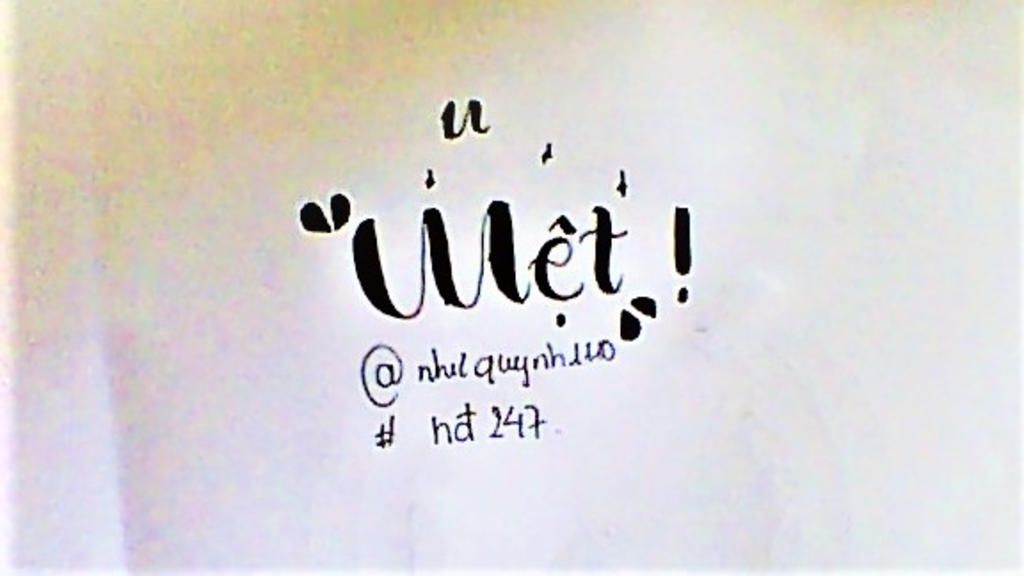 "Mệt"!
@nhuquynh110
# hđ 247